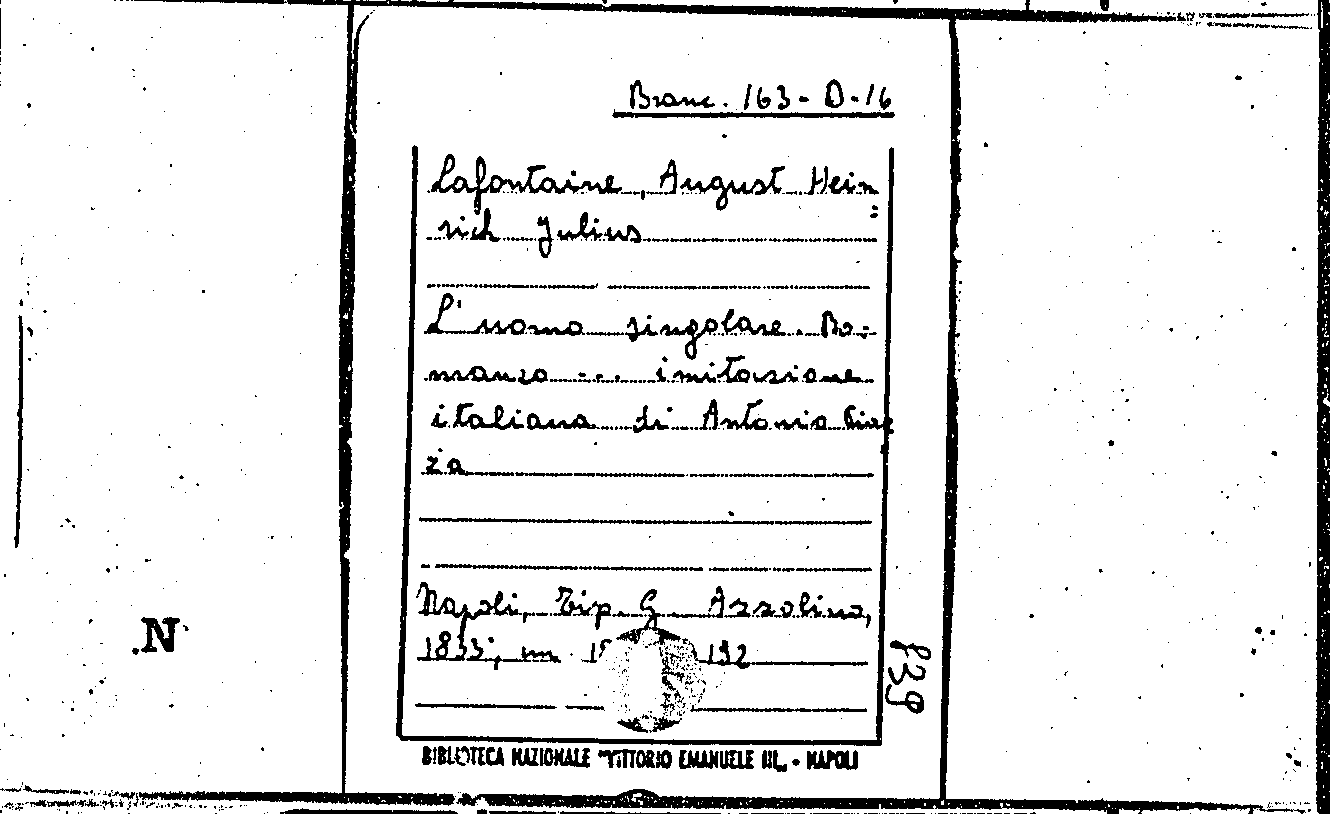 Branc. 163-D-16
Lafontaine, August Hein=
rich Julius
L'uomo singolare. Ro=
manzo ... imitazione
italiana di Antonio Piaz
za
Napoli, Tip. G. Azzolino,
1833, 132
839
.N
BIBLIOTECA NAZIONALE "VITTORIO EMANUELE III" - NAPOLI